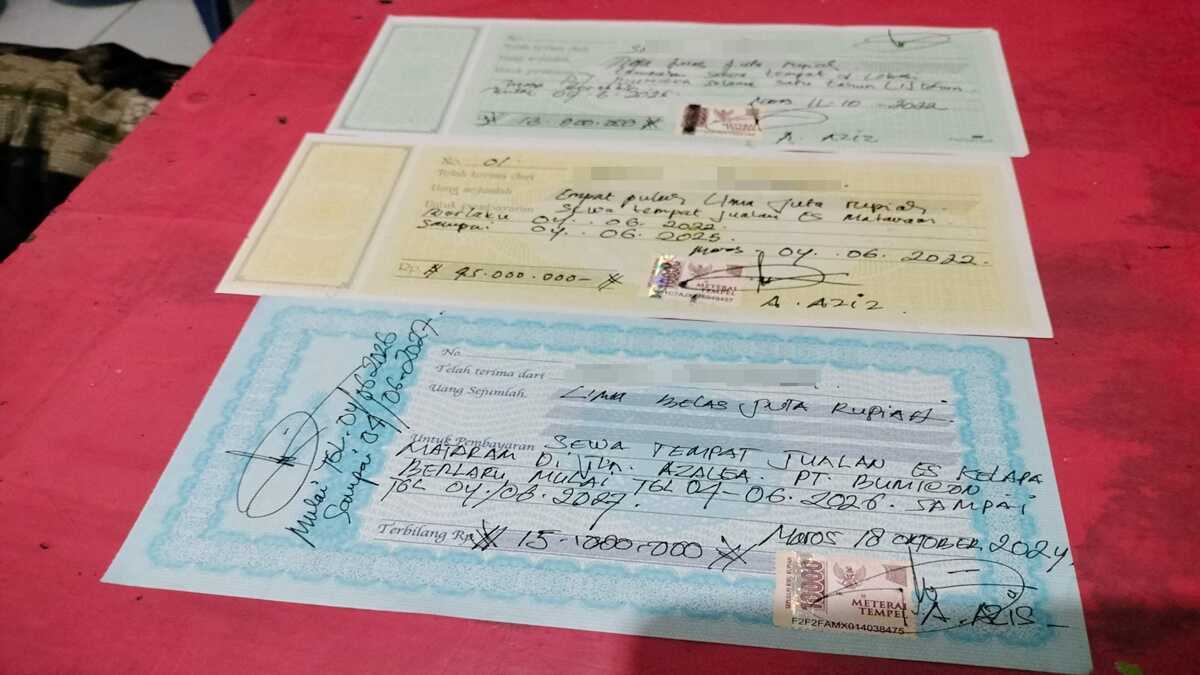 No.
Telah terima dari
Uang sejumlah
juta rupiah
Untuk pembayaran
sewa tempat di lokasi
selama satu tahun
mulai 04.6.2025
11-10-2022
A. AZIZ
No. 01
Telah terima dari
Uang sejumlah
Empat puluh Lima Juta rupiah
Untuk pembayaran
Sewa tempat Jualan ES Mataram
Berlaku 04.06.2022
Sampai 04.06.2025.
Maros 04.06.2022.
Rp. 45.000.000-
METERAI
TEMPEL
A. AZIZ
No.
Telah terima dari
Uang Sejumlah
LIMA BELAS JUTA RUPIAH.
Untuk Pembayaran SEWA TEMPAT JUALAN ES KELAPA
MATARAM DI JLN. AZALEA. PT. BUMI
BERLAKU MULAI TGL 04-06.2026. SAMPAI
TGL 04/06.2027.
Terbilang Rp 15.000.000
Maros 18 OKTOBER 2024
10000
METERAI
TEMPEL
F2F2FAMX014038475
A. AZIS
Mulai TGL. 04/06 2026
Sampai 04/06-2027.